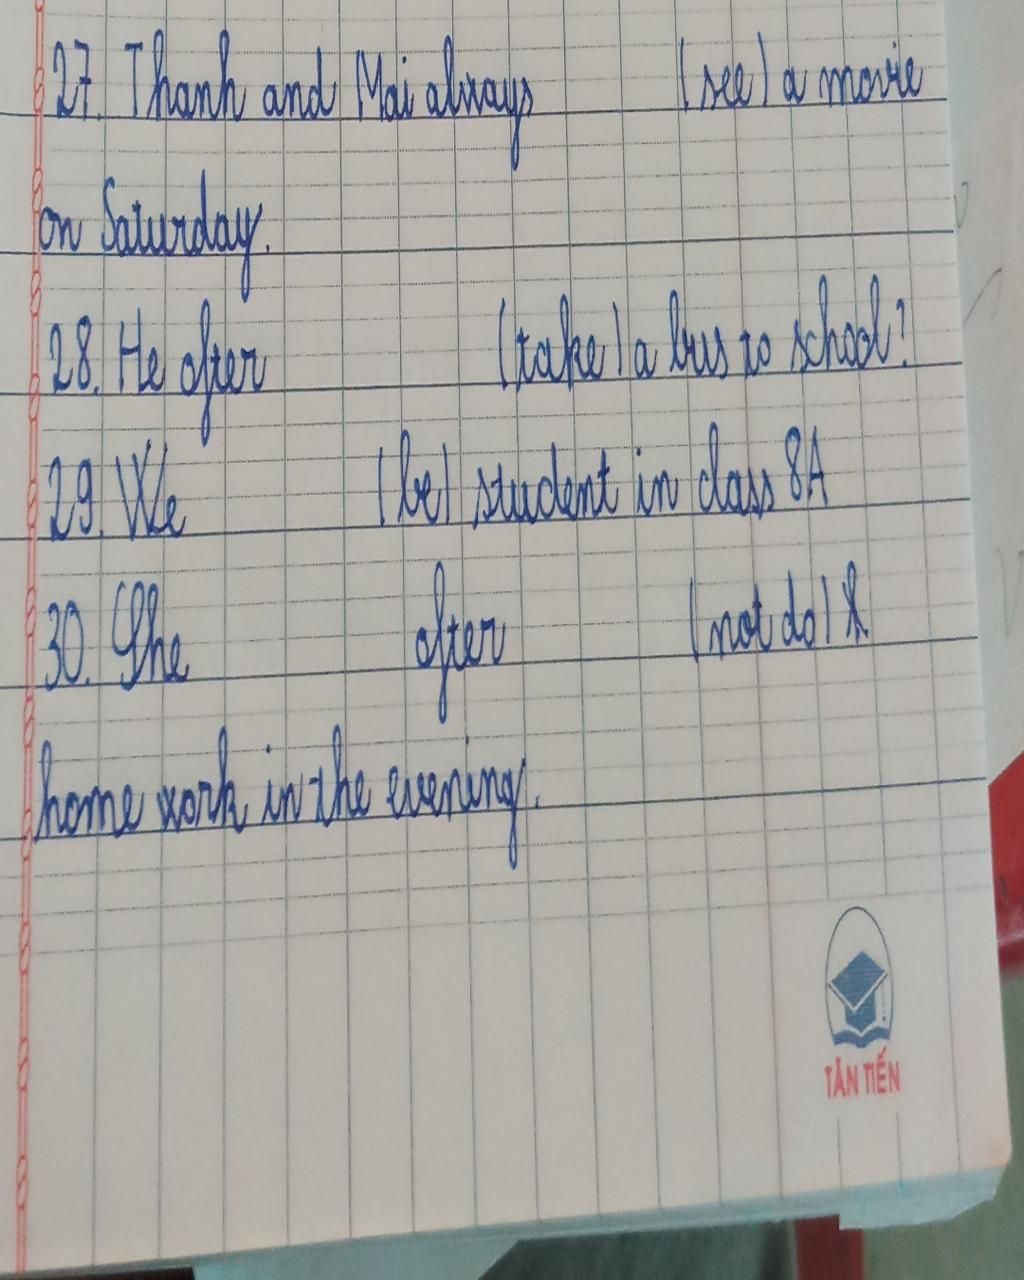 27. Thanh and Mai always (see) a movie
on Saturday.
28. He ofter (take) a bus to school?
29. We (be) student in class 8A
30. She ofter (not do)
home work in the evening.
TÂN TIẾN